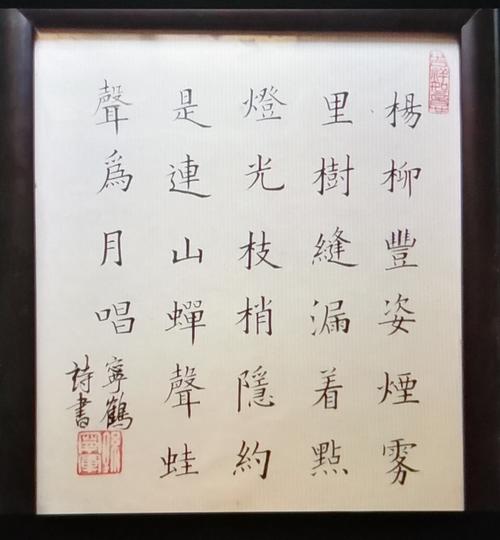 楊柳豐姿煙雾
里樹縫漏着點
燈光枝梢隱約
是連山蟬聲蛙
聲爲月唱
寧鶴
詩書